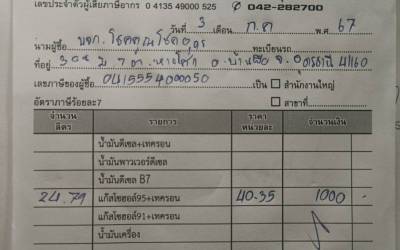 เลขประจำตัวผู้เสียภาษีอากร 0 4135 49000 525 042-282700
วันที่ 3 เดือน ก.ค พ.ศ 67
นามผู้ซื้อ บจก. โชคคูณโชคอุดร ทะเบียนรถ
ที่อยู่ 304 ม.7 ต. หางโศก อ. บ้านดือ จ. อุดรธานี 41160
เลขภาษีของผู้ซื้อ 0415554000050 เป็น สำนักงานใหญ่
อัตราภาษีร้อยละ7 สาขาที่
จำนวน ลิตร รายการ ราคา หน่วยละ จำนวนเงิน
น้ำมันดีเซล+เทครอน
น้ำมันพาวเวอร์ดีเซล
น้ำมันดีเซล B7
24.79 แก๊สโซฮอล์95+เทครอน 40.35 1000
แก๊สโซฮอล์91+เทครอน
น้ำมันเครื่อง